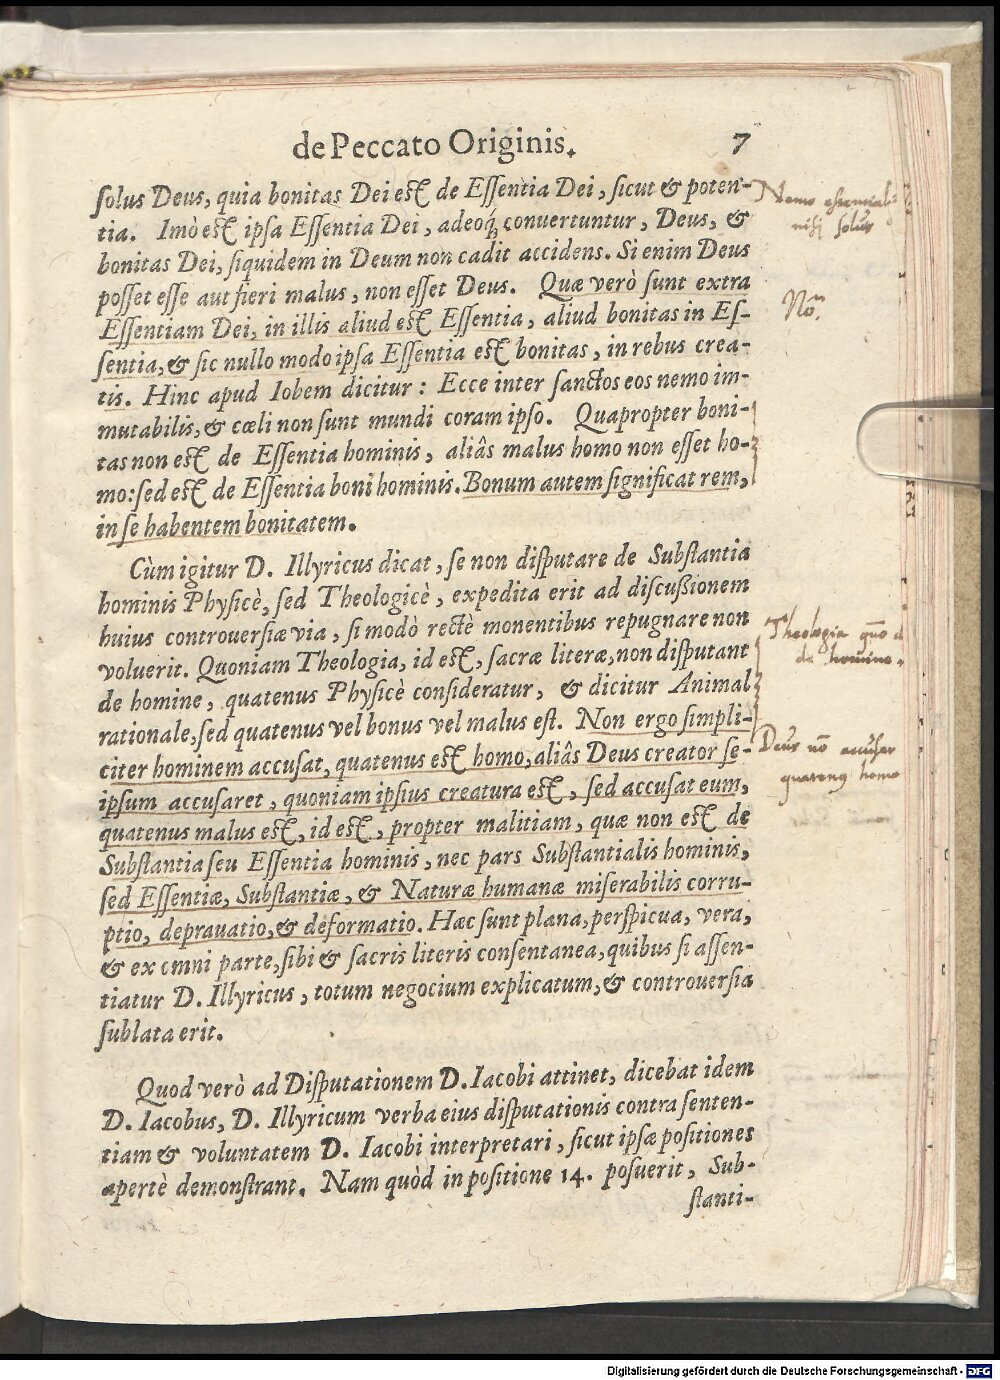 de Peccato Originis. 7
solus Deus, quia bonitas Dei est de Essentia Dei, sicut & poten-
tia. Imò est ipsa Essentia Dei, adeoq́; conuertuntur, Deus, &
bonitas Dei, siquidem in Deum non cadit accidens. Si enim Deus
posset esse aut fieri malus, non esset Deus. Quæ verò sunt extra
Essentiam Dei, in illis aliud est Essentia, aliud bonitas in Es-
sentia, & sic nullo modo ipsa Essentia est bonitas, in rebus crea-
tis. Hinc apud Iobem dicitur: Ecce inter sanctos eos nemo im-
mutabilis, & cœli non sunt mundi coram ipso. Quapropter boni-
tas non est de Essentia hominis, aliâs malus homo non esset ho-
mo: sed est de Essentia boni hominis. Bonum autem significat rem,
in se habentem bonitatem.
Cùm igitur D. Illyricus dicat, se non disputare de Substantia
hominis Physicè, sed Theologicè, expedita erit ad discußionem
huius controuersiæ via, si modò rectè monentibus repugnare non
voluerit. Quoniam Theologia, id est, sacræ literæ, non disputant
de homine, quatenus Physicè consideratur, & dicitur Animal
rationale, sed quatenus vel bonus vel malus est. Non ergo simpli-
citer hominem accusat, quatenus est homo, aliâs Deus creator se-
ipsum accusaret, quoniam ipsius creatura est, sed accusat eum,
quatenus malus est, id est, propter malitiam, quæ non est de
Substantia seu Essentia hominis, nec pars Substantialis hominis,
sed Essentiæ, Substantiæ, & Naturæ humanæ miserabilis corru-
ptio, deprauatio, & deformatio. Hæc sunt plana, perspicua, vera,
& ex omni parte, sibi & sacris literis consentanea, quibus si assen-
tiatur D. Illyricus, totum negocium explicatum, & controuersia
sublata erit.
Quod verò ad Disputationem D. Iacobi attinet, dicebat idem
D. Iacobus, D. Illyricum verba eius disputationis contra senten-
tiam & voluntatem D. Iacobi interpretari, sicut ipsæ positiones
apertè demonstrant. Nam quòd in positione 14. posuerit, Sub-
stanti-
Nemo
nisi solus
No.
Theologia quo
de homine.
Deus nō accusat
quatenus homo
Digitalisierung gefördert durch die Deutsche Forschungsgemeinschaft - DFG